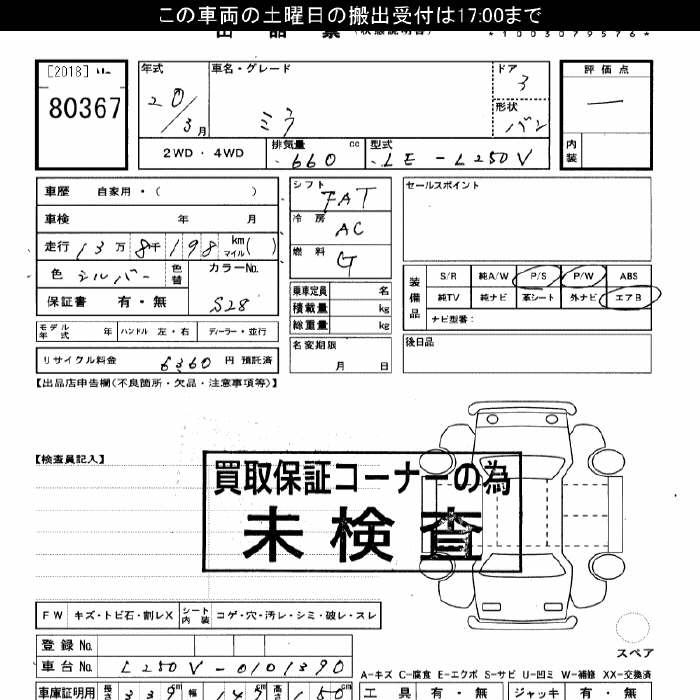 この車両の土曜日の搬出受付は17:00まで
*1003079576*
[2018]
80367
年式
20/3月
車名・グレード
ミラ
ドア
3
形状
バン
評価点
—
内装
2WD ・ 4WD
排気量 660 cc
型式 LE-L250V
車歴 自家用・( )
車検 年 月
走行 13万8千198 km マイル( )
色 シルバー 色替
カラーNo. S28
保証書 有・無
モデル年式 年 ハンドル 左・右 ディーラー・並行
リサイクル料金 6360 円 預託済
シフト FAT
冷房 AC
燃料 G
乗車定員 名
積載量 kg
総重量 kg
名変期限
月 日
セールスポイント
装備品
S/R 純A/W P/S P/W ABS
純TV 純ナビ 革シート 外ナビ エアB
ナビ型番:
後日品
【出品店申告欄(不良箇所・欠品・注意事項等)】
【検査員記入】
買取保証コーナーの為
未検査
FW キズ・トビ石・割レX シート内装 コゲ・穴・汚レ・シミ・破レ・スレ
スペア
登録 No.
車台 No. L250V-0101390
A-キズ C-腐食 E-エクボ S-サビ U-凹ミ W-補修 XX-交換済
車庫証明用 長さ 339cm 幅 147cm 高さ 150cm
工具 有・無 ジャッキ 有・無